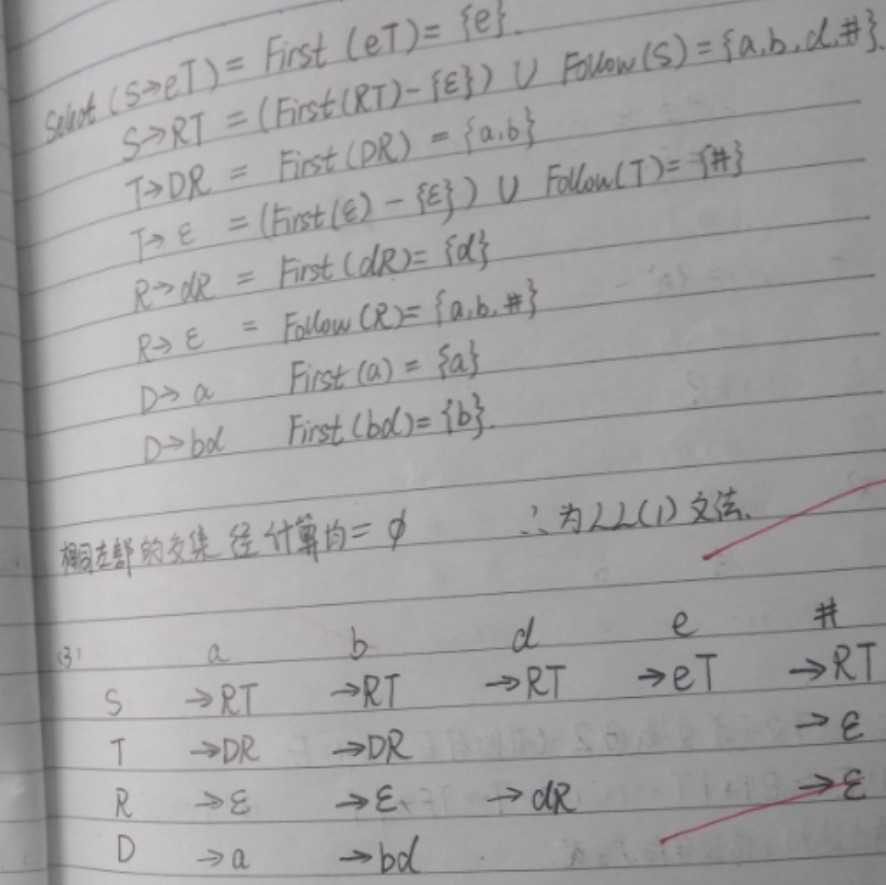 Select (S→eT) = First (eT) = {e}.
S→RT = (First(RT)-{ε}) ∪ Follow(S) = {a,b,d,#}.
T→DR = First(DR) = {a,b}
T→ε = (First(ε) - {ε}) ∪ Follow(T) = {#}
R→dR = First(dR) = {d}
R→ε = Follow(R) = {a,b,#}
D→a First(a) = {a}
D→bd First(bd) = {b}.
相同左部的交集 经计算均 = ∅ ∴为LL(1)文法.
(3) a b d e #
S →RT →RT →RT →eT →RT
T →DR →DR →ε
R →ε →ε →dR →ε
D →a →bd